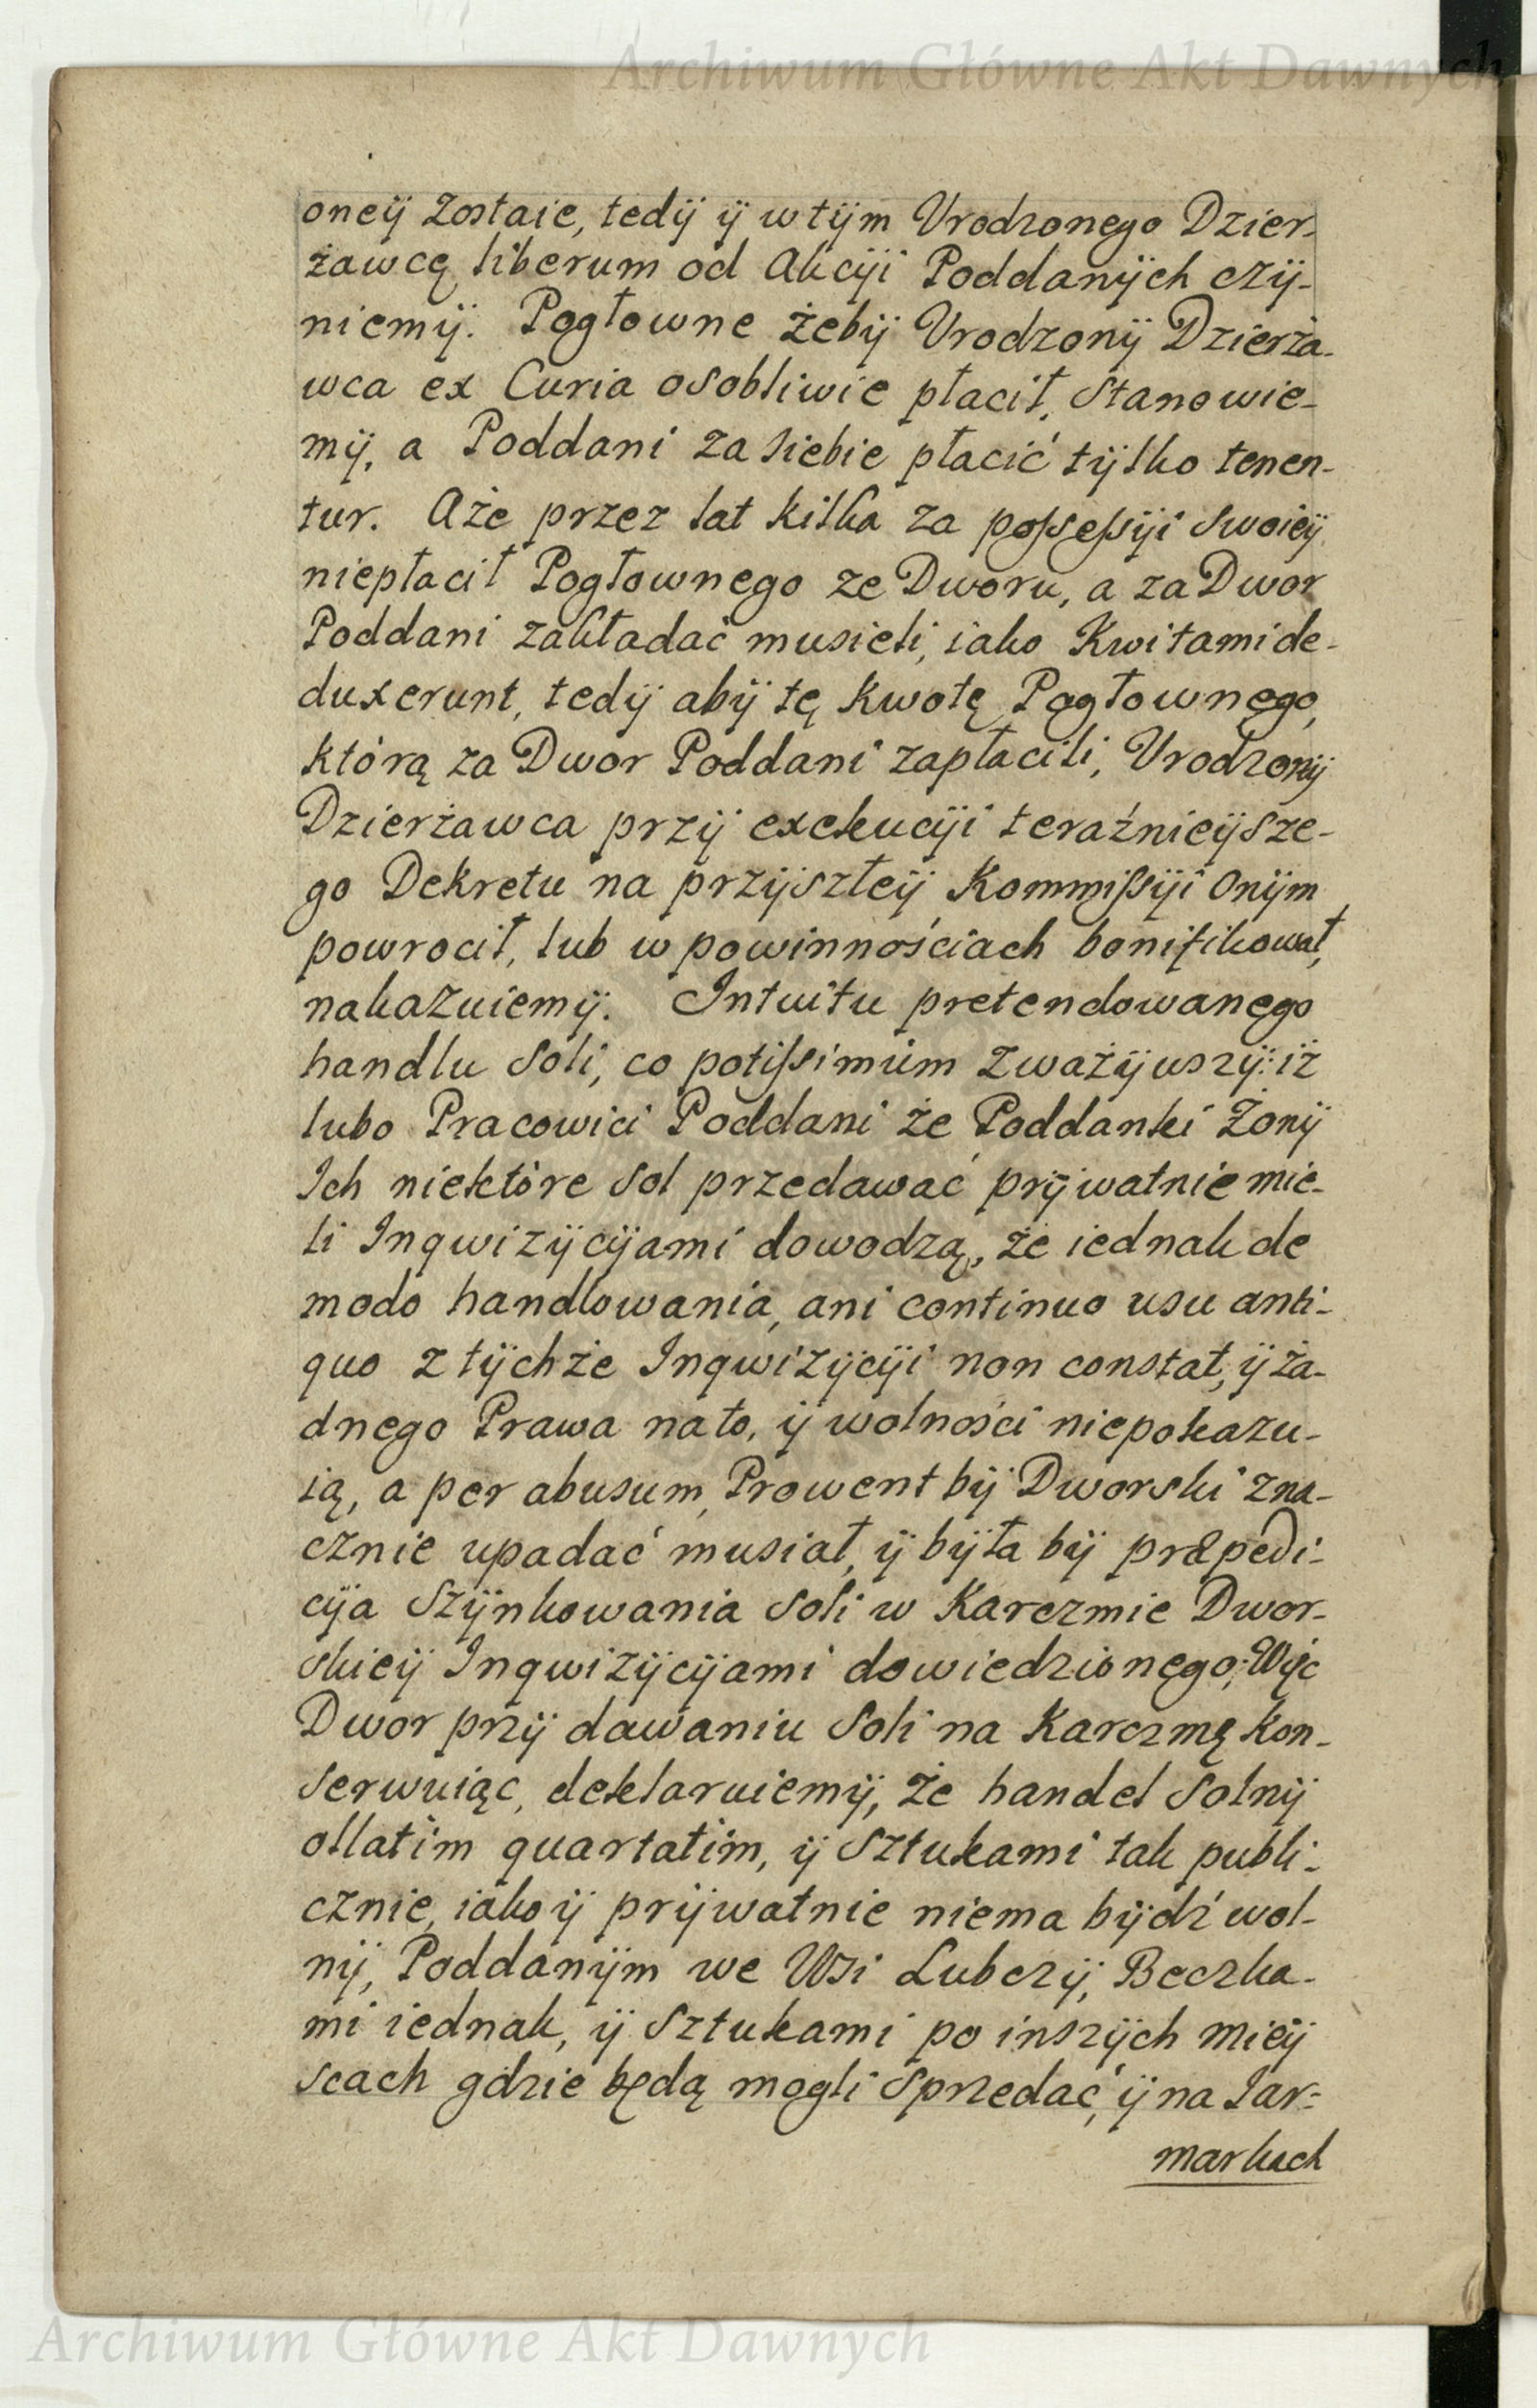 Archiwum Główne Akt Dawnych
oneÿ zostaie, tedÿ ÿ w tÿm Vrodzonego Dzier-
żawcę liberum od Akcÿi Poddanÿch czÿ-
niemÿ. Pogłowne żebÿ Vrodzonÿ Dzierża-
wca ex Curia osobliwie płacił, stanowie-
mÿ, a Poddani za siebie płacić tÿlko tenen-
tur. Aże przez lat kilka za possessÿi swoieÿ
niepłacił Pogłownego ze Dworu, a za Dwor
Poddani zakładać musieli, iako Kwitami de-
duxerunt, tedÿ abÿ tę kwotę Pogłownego,
którą za Dwor Poddani zapłacili, Vrodzonÿ
Dzierżawca przÿ exekucÿi teraźnieÿsze-
go Dekretu na przÿszłeÿ Kommissÿi onÿm
powrocił, lub w powinnościach bonifikował,
nakazuiemÿ. Intuitu pretendowanego
handlu soli, co potissimum zważÿwszÿ: iż
lubo Pracowici Poddani że Poddanki Żonÿ
Ich niektòre sol przedawać prÿwatnie mie-
li Inqwizÿcÿami dowodzą, że iednak de
modo handlowania, ani continuo usu anti-
quo z tÿchże Inqwizÿcÿi non constat, ÿ ża-
dnego Prawa na to, ÿ wolności niepokazu-
ią, a per abusum Prowent bÿ Dworski zna-
cznie upadać musiał, ÿ bÿła bÿ præpedi-
cÿa szÿnkowania soli w Karczmie Dwor-
skieÿ Inqwizÿcÿami dowiedzionego; Więc
Dwor przÿ dawaniu soli na Karczmę kon-
serwuiąc, deklaruiemÿ, że handel solnÿ
ollatim quartatim, ÿ sztukami tak publi-
cznie, iako ÿ prÿwatnie niema bÿdź wol-
nÿ, Poddanÿm we Wsi Lubczÿ, Beczka-
mi iednak, ÿ sztukami po inszÿch mieÿ
scach gdzie będą mogli sprzedać, ÿ na Iar-
markach
Archiwum Główne Akt Dawnych